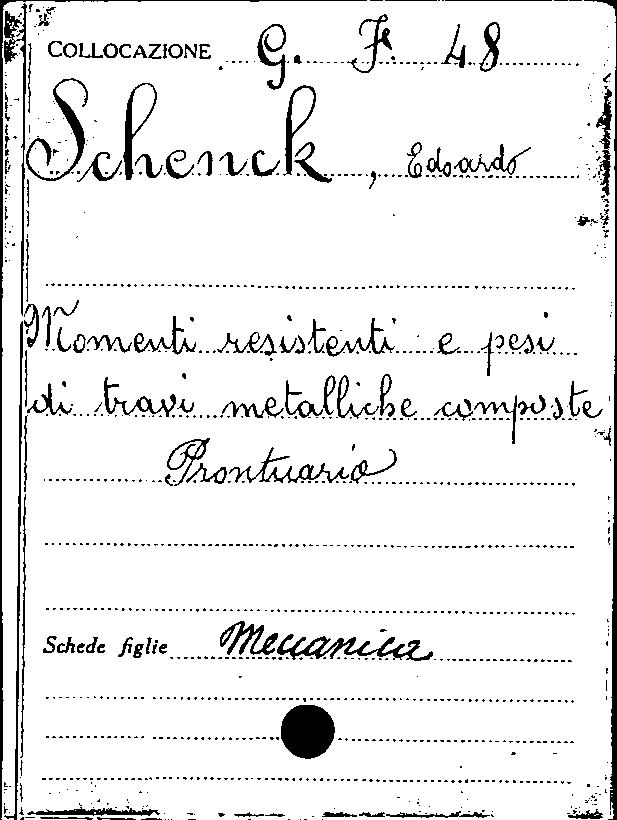 COLLOCAZIONE G. F. 48
Schenck, Edoardo
Momenti resistenti e pesi
di travi metalliche composte
Prontuario
Schede figlie Meccanica